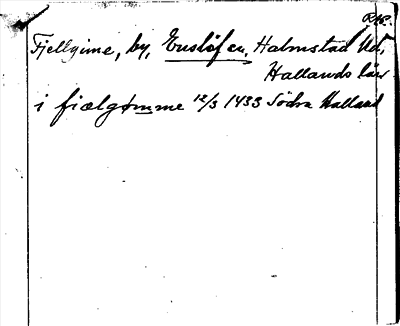 Fjellgime, by, Enslöf sn. Halmstad hd,
Hallands län
i fiælgømme 12/3 1433 Södra Halland